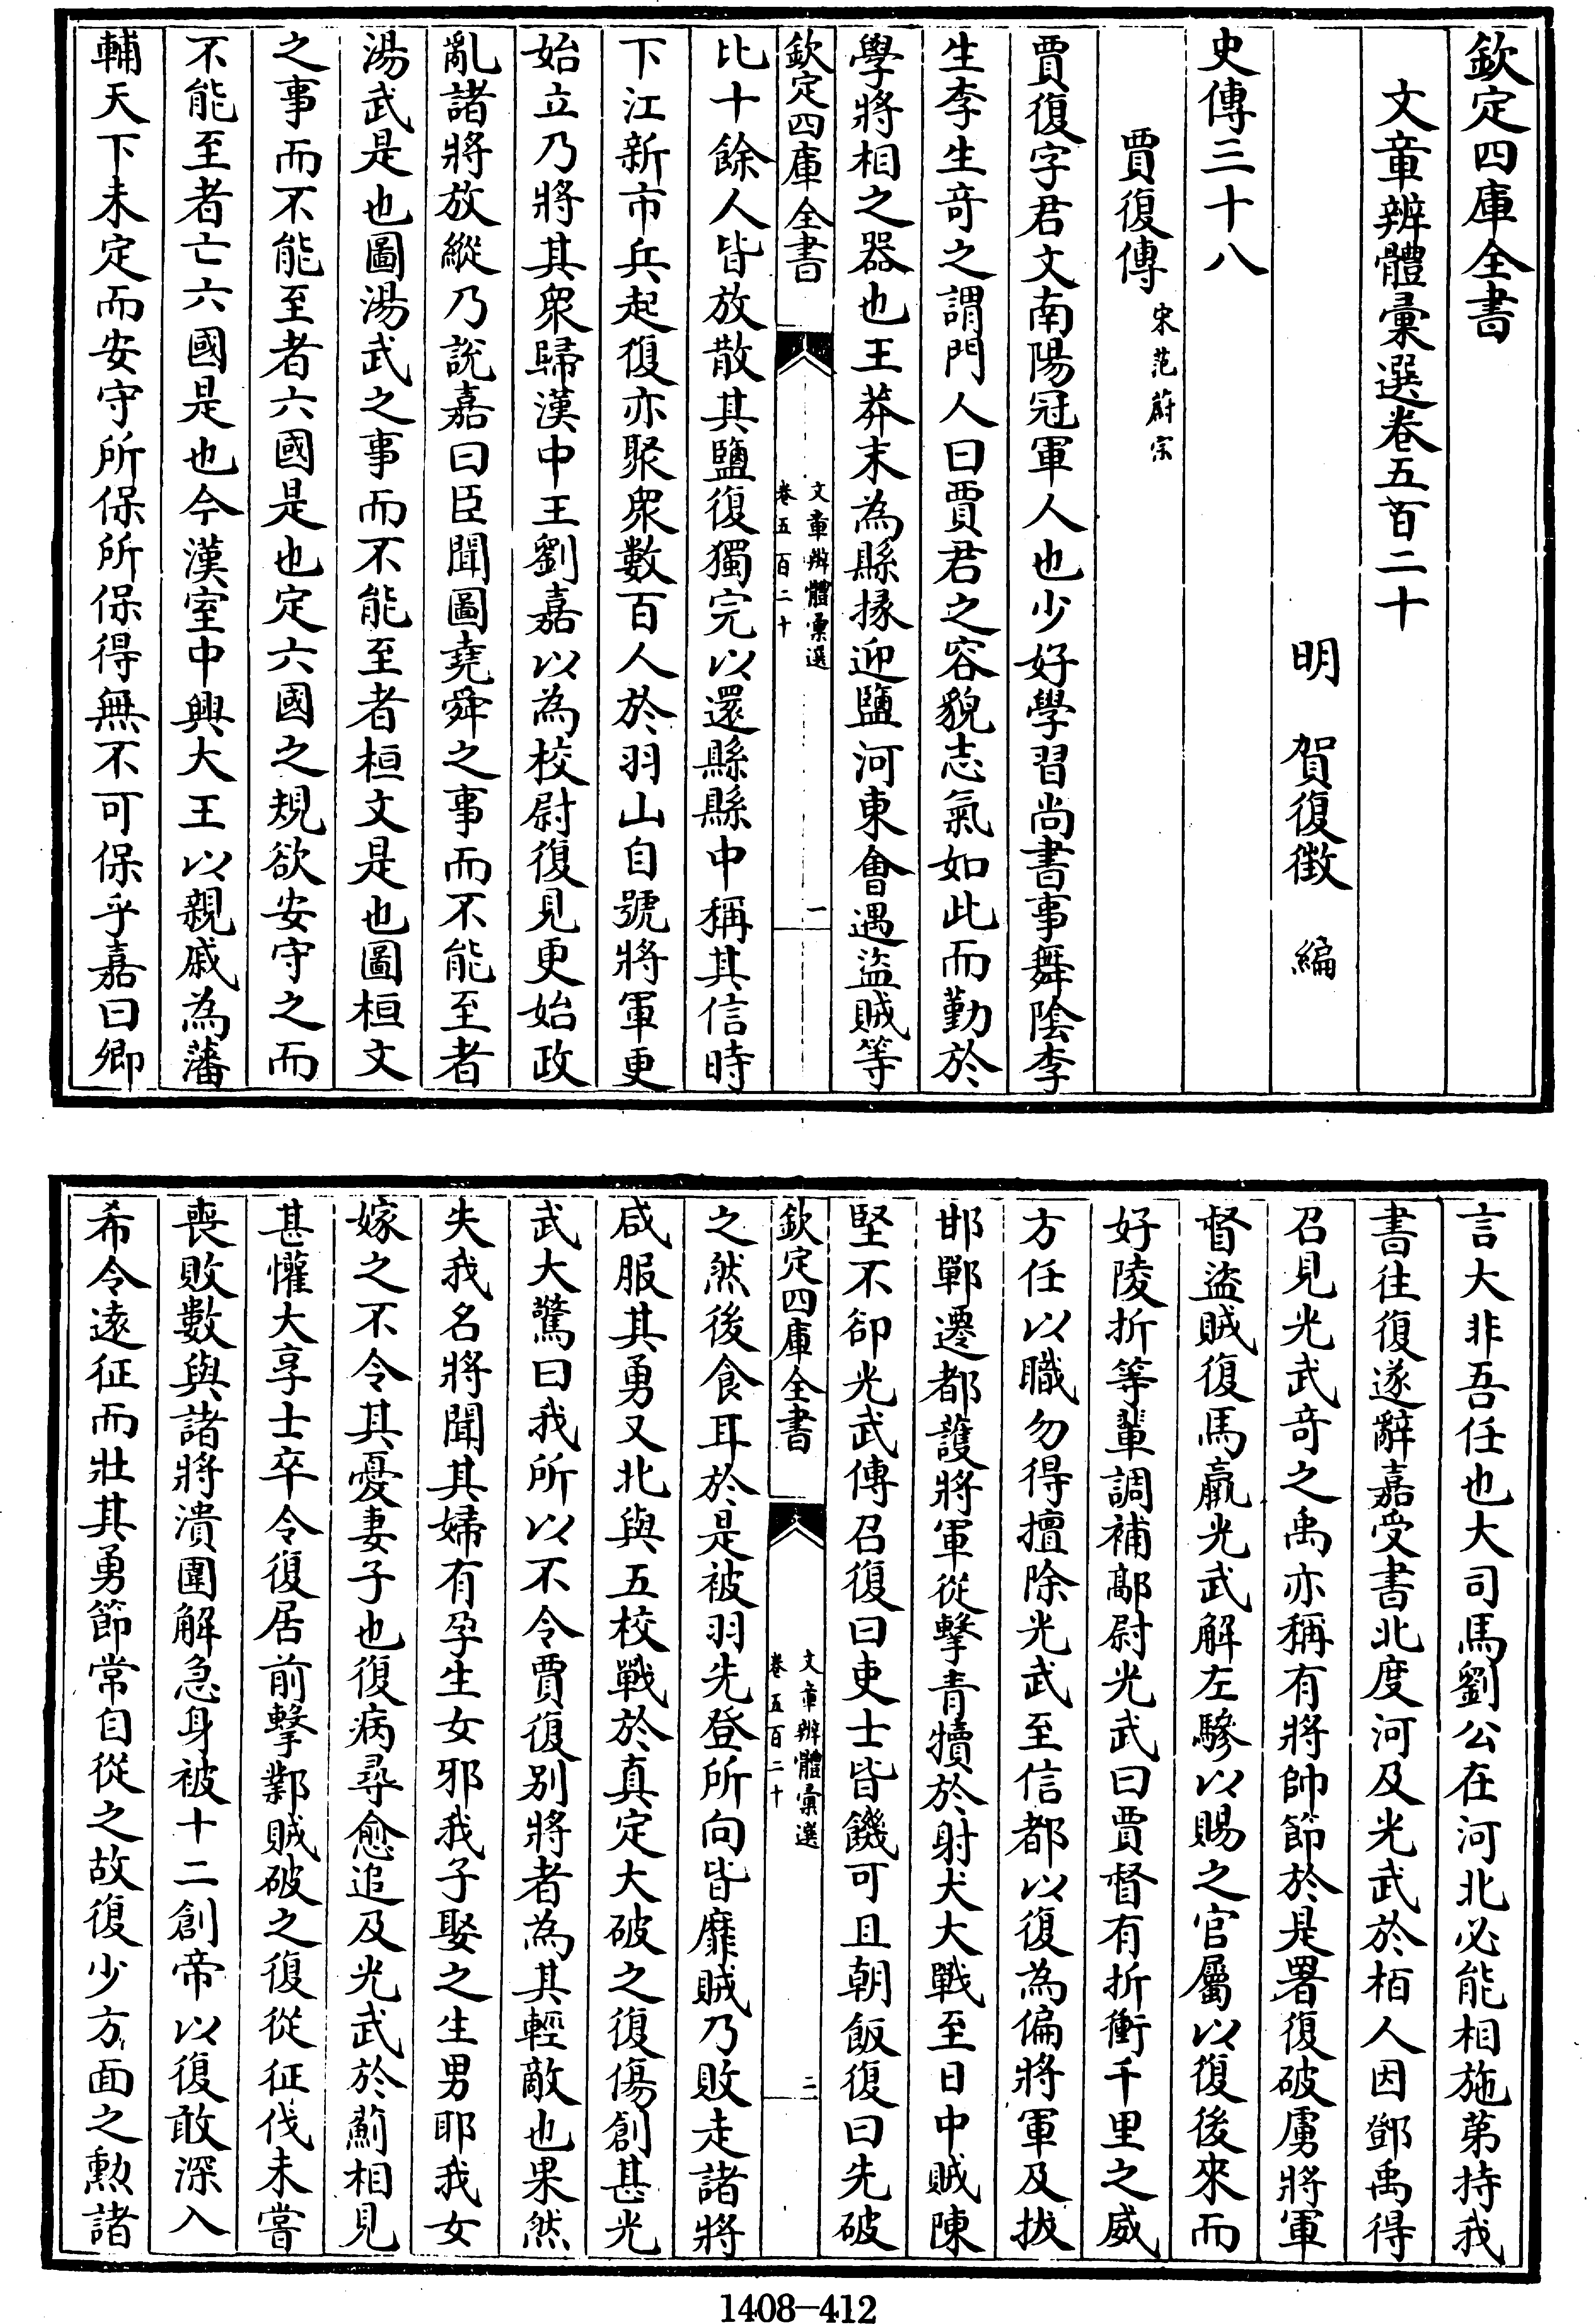 欽定四庫全書
文章辨體彙選卷五百二十
明　賀復徵　編
史傳三十八
賈復傳 宋范蔚宗
賈復字君文南陽冠軍人也少好學習尚書事舞陰李
生李生奇之謂門人曰賈君之容貌志氣如此而勤於
學將相之器也王莽末為縣掾迎鹽河東會遇盜賊等
欽定四庫全書
文章辨體彙選
卷五百二十
一
比十餘人皆放散其鹽復獨完以還縣縣中稱其信時
下江新市兵起復亦聚衆數百人於羽山自號將軍更
始立乃將其衆歸漢中王劉嘉以為校尉復見更始政
亂諸將放縱乃說嘉曰臣聞圖堯舜之事而不能至者
湯武是也圖湯武之事而不能至者桓文是也圖桓文
之事而不能至者六國是也定六國之規欲安守之而
不能至者亡六國是也今漢室中興大王以親戚為藩
輔天下未定而安守所保所保得無不可保乎嘉曰卿
言大非吾任也大司馬劉公在河北必能相施第持我
書往復遂辭嘉受書北度河及光武於栢人因鄧禹得
召見光武奇之禹亦稱有將帥節於是署復破虜將軍
督盜賊復馬羸光武解左驂以賜之官屬以復後來而
好陵折等輩調補鄗尉光武曰賈督有折衝千里之威
方任以職勿得擅除光武至信都以復為偏將軍及拔
邯鄲遷都護將軍從擊青犢於射犬大戰至日中賊陳
堅不卻光武傳召復曰吏士皆饑可且朝飯復曰先破
欽定四庫全書
文章辨體彙選
卷五百二十
二
之然後食耳於是被羽先登所向皆靡賊乃敗走諸將
咸服其勇又北與五校戰於真定大破之復傷創甚光
武大驚曰我所以不令賈復别將者為其輕敵也果然
失我名將聞其婦有孕生女邪我子娶之生男耶我女
嫁之不令其憂妻子也復病尋愈追及光武於薊相見
甚懽大享士卒令復居前擊鄴賊破之復從征伐未嘗
喪敗數與諸將潰圍解急身被十二創帝以復敢深入
希令遠征而壯其勇節常自從之故復少方面之勲諸
1408—412